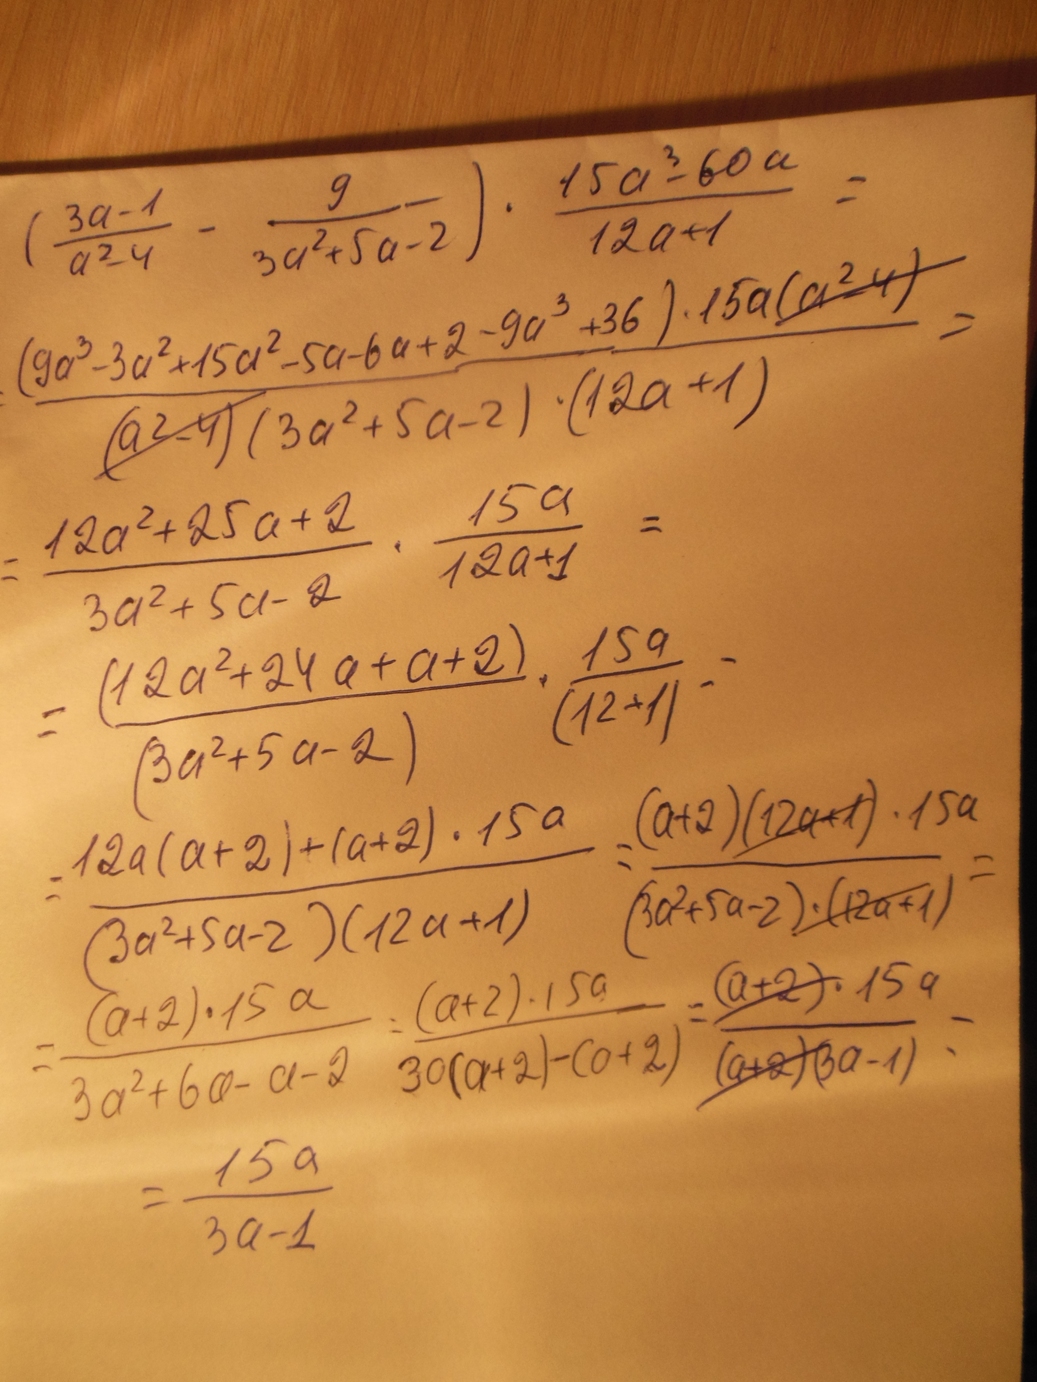 (3a-1/a²-4 - 9/3a²+5a-2) · 15a³-60a/12a+1 =
= (9a³-3a²+15a²-5a-6a+2-9a³+36) · 15a(a²-4)/(a²-4)(3a²+5a-2)·(12a+1) =
= 12a²+25a+2/3a²+5a-2 · 15a/12a+1 =
= (12a²+24a+a+2)/(3a²+5a-2) · 15a/(12+1) =
= 12a(a+2)+(a+2)·15a/(3a²+5a-2)(12a+1) = (a+2)(12a+1)·15a/(3a²+5a-2)·(12a+1) =
= (a+2)·15a/3a²+6a-a-2 = (a+2)·15a/30(a+2)-(a+2) = (a+2)·15a/(a+2)(3a-1) =
= 15a/3a-1